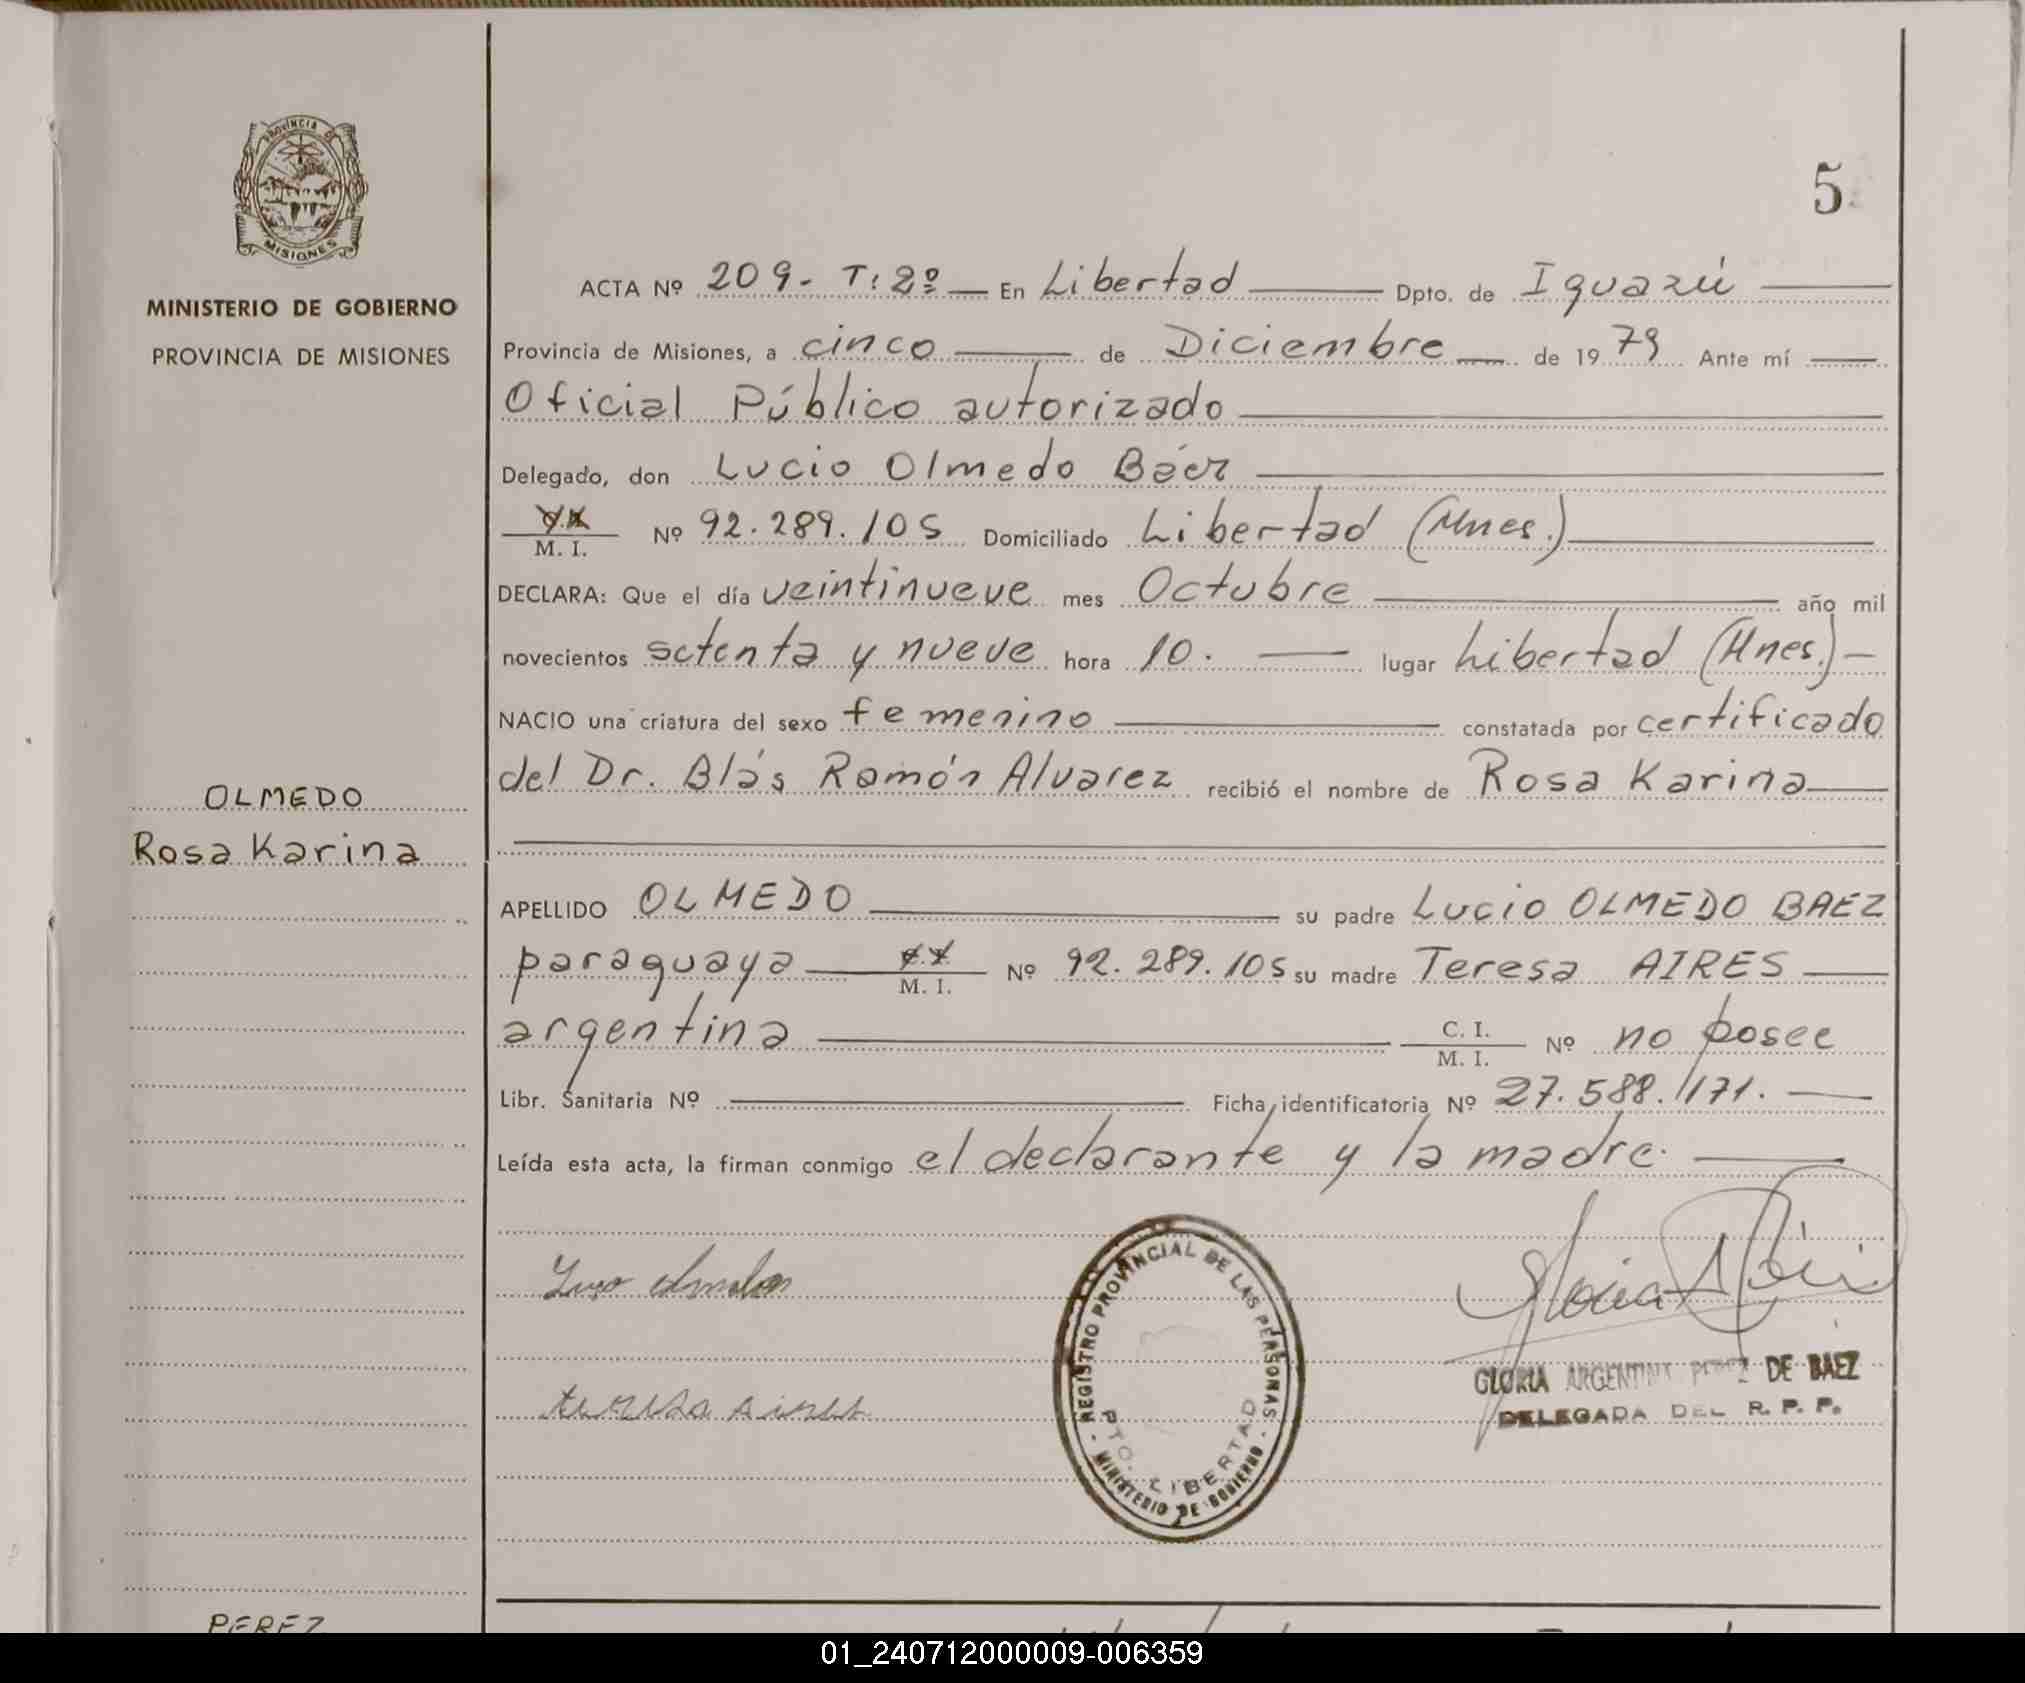 PROVINCIA DE
MISIONES
MINISTERIO DE GOBIERNO
PROVINCIA DE MISIONES
5
ACTA Nº 209- T: 2º — En Libertad — Dpto. de Iguazú —
Provincia de Misiones, a cinco — de Diciembre — de 1979 Ante mí —
Oficial Público autorizado —
Delegado, don Lucio Olmedo Báez —
M. I. Nº 92.289.105 Domiciliado Libertad (Mnes.) —
DECLARA: Que el día veintinueve mes Octubre — año mil
novecientos setenta y nueve hora 10. — lugar Libertad (Mnes.) —
NACIO una criatura del sexo femenino — constatada por certificado
del Dr. Blás Ramón Alvarez recibió el nombre de Rosa Karina —
OLMEDO
Rosa Karina
APELLIDO OLMEDO — su padre Lucio OLMEDO BAEZ
paraguaya — M. I. Nº 92.289.105 su madre Teresa AIRES —
argentina — C. I. M. I. Nº no posee
Libr. Sanitaria Nº — Ficha identificatoria Nº 27.588.171. —
Leída esta acta, la firman conmigo el declarante y la madre. —
teresa aires
REGISTRO PROVINCIAL DE LAS PERSONAS
PTO. LIBERTAD
- MINISTERIO DE GOBIERNO -
GLORIA ARGENTINA PEREZ DE BAEZ
DELEGADA DEL R. P. P.
PEREZ
01_240712000009-006359